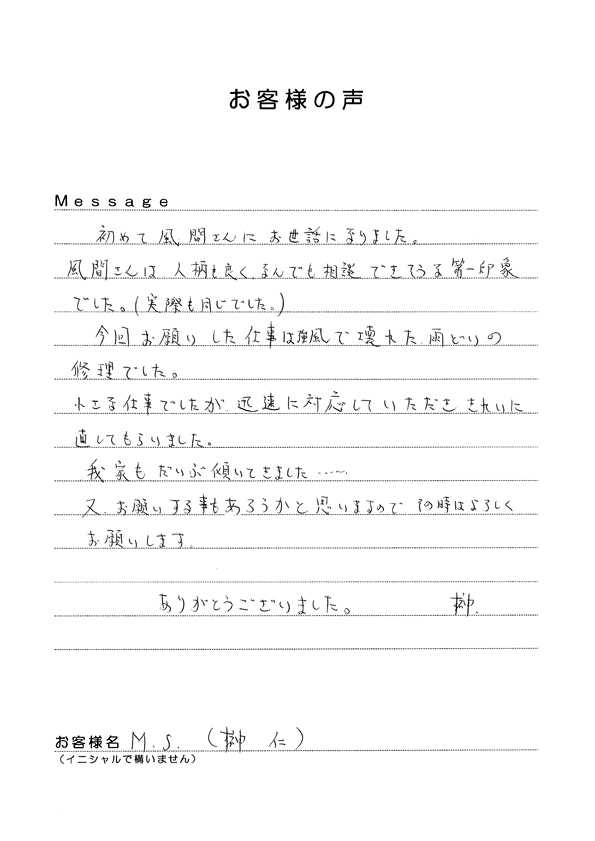 お客様の声
Message
初めて風間さんにお世話になりました。
風間さんは人柄も良くなんでも相談できそうな第一印象
でした。(実際も同じでした。)
今回お願いした仕事は強風で壊れた雨どいの
修理でした。
小さな仕事でしたが、迅速に対応していただききれいに
直してもらいました。
我家もだいぶ傾いてきました……
又、お願いする事もあろうかと思いますのでその時はよろしく
お願いします。
ありがとうございました。 榊.
お客様名 M.S. (榊 仁)
(イニシャルで構いません)